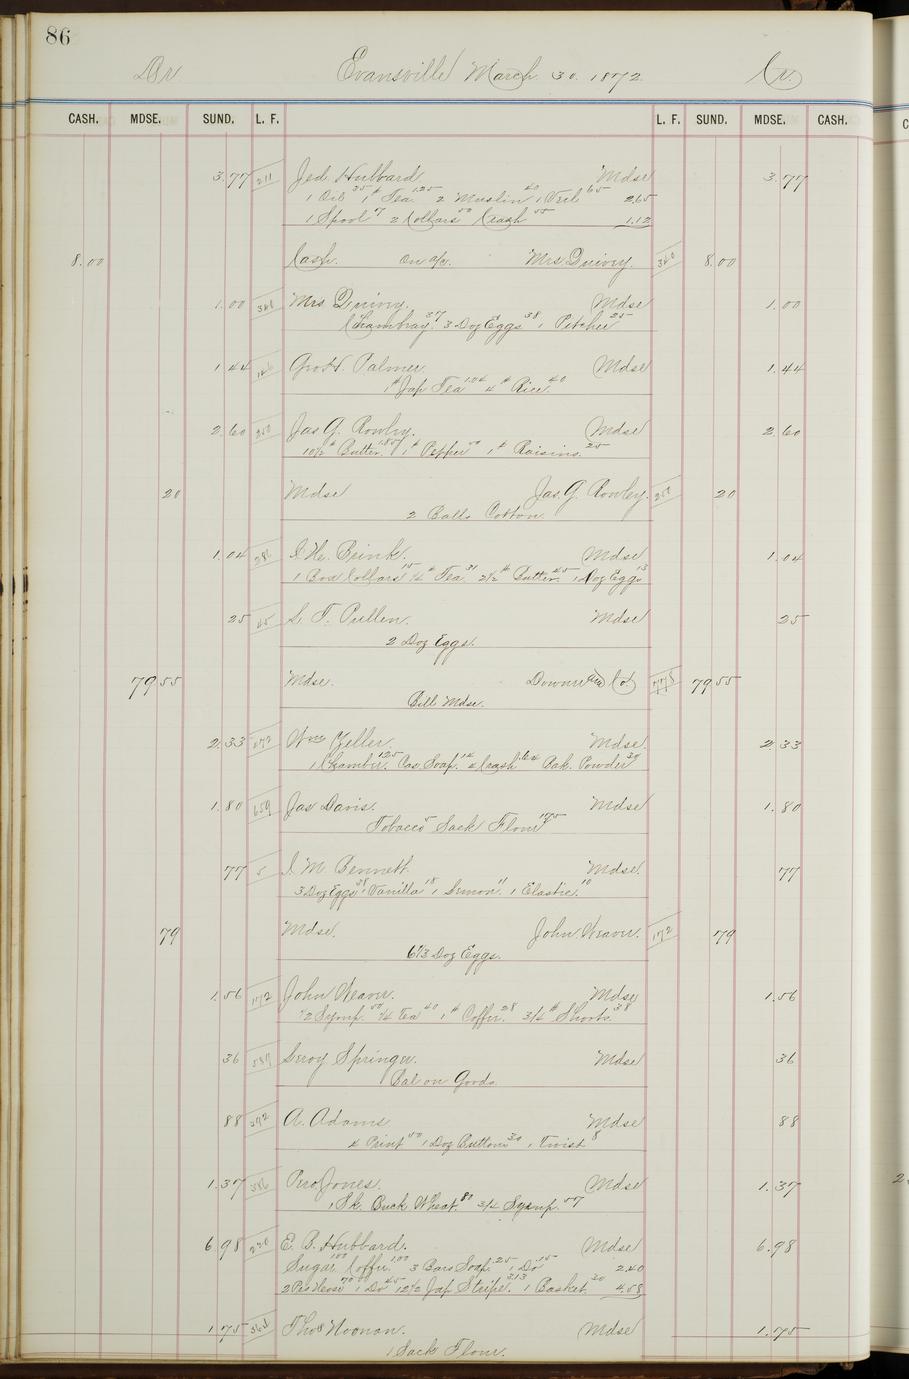 86
Dr Evansville March 30. 1872 Cr.
CASH. MDSE. SUND. L. F. L. F. SUND. MDSE. CASH.
3.77 211 Jed Hubbard Mdse 3.77
1 Oil 35 1# Tea 125 2 Muslin 40 1 Veil 65 2.65
1 Spool 7 2 Collars 50 Crash 55 1.12
8.00 Cash. on a/c. Mrs Quivey. 340 8.00
1.00 340 Mrs Quivey. Mdse 1.00
Chambray 37 3 Doz Eggs 38 1 Pitcher 25
1.44 Geo H. Palmer. Mdse 1.44
1# Jap Tea 1.04 4# Rice 40
2.60 250 Jas G. Rowley. Mdse 2.60
10½# Butter 1.85 1# Pepper 50 1# Raisins 25
20 Mdse Jas. G. Rowley. 250 20
2 Balls Cotton.
1.04 Brink. Mdse 1.04
1 Box Collars 15 ¼# Tea 31 2½# Butter 45 1 Doz Eggs 13
25 45 S. T. Pullen. Mdse 25
2 Doz Eggs.
79 55 Mdse. Co 79 55
Bill Mdse.
2.33 Wm Zeller. Mdse. 2.33
1 Chamber 125 Cas. Soap 14 4 Crash .64 Bak. Powder 30
1.80 659 Jas Davis. Mdse 1.80
Tobacco 5 Sack Flour 175
77 5 I. M. Bennett. Mdse. 77
3 Doz Eggs 38 1 Vanilla 18 1 Lemon 11 1 Elastic 10
79 Mdse. John Weaver. 172 79
6⅓ Doz Eggs.
1.56 172 John Weaver. Mdse 1.56
½ Syrup. 50 ¼ Tea 40 1# Coffee. 28 3/4# Shorts. 38
36 589 Leroy Springer. Mdse 36
Bal on Goods
88 592 A. Adams Mdse 88
4 Print 50 1 Doz Buttons 30 1 Twist 8
1.37 386 Jones. Mdse 1.37
1 Sk. Buck Wheat 80 3/4 Syrup. 57
6.98 220 E. B. Hubbard. Mdse 6.98
Sugar 100 Coffee. 100 3 Bars Soap. 25 1 Do 15 2.40
2 Prs Hose 70 1 Do 45 12½ Jap Stripe. 313 1 Basket 30 4.58
1.75 363 Thos Noonan. Mdse 1.75
1 Sack Flour.